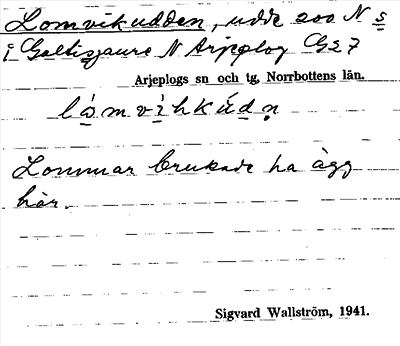 Lomvikudden, udde 200 N s
i Galtisjaure N Arjeplog G27
Arjeplogs sn och tg, Norrbottens län.
lómvìhkúdn
Lommar brukade ha ägg
här.
Sigvard Wallström, 1941.